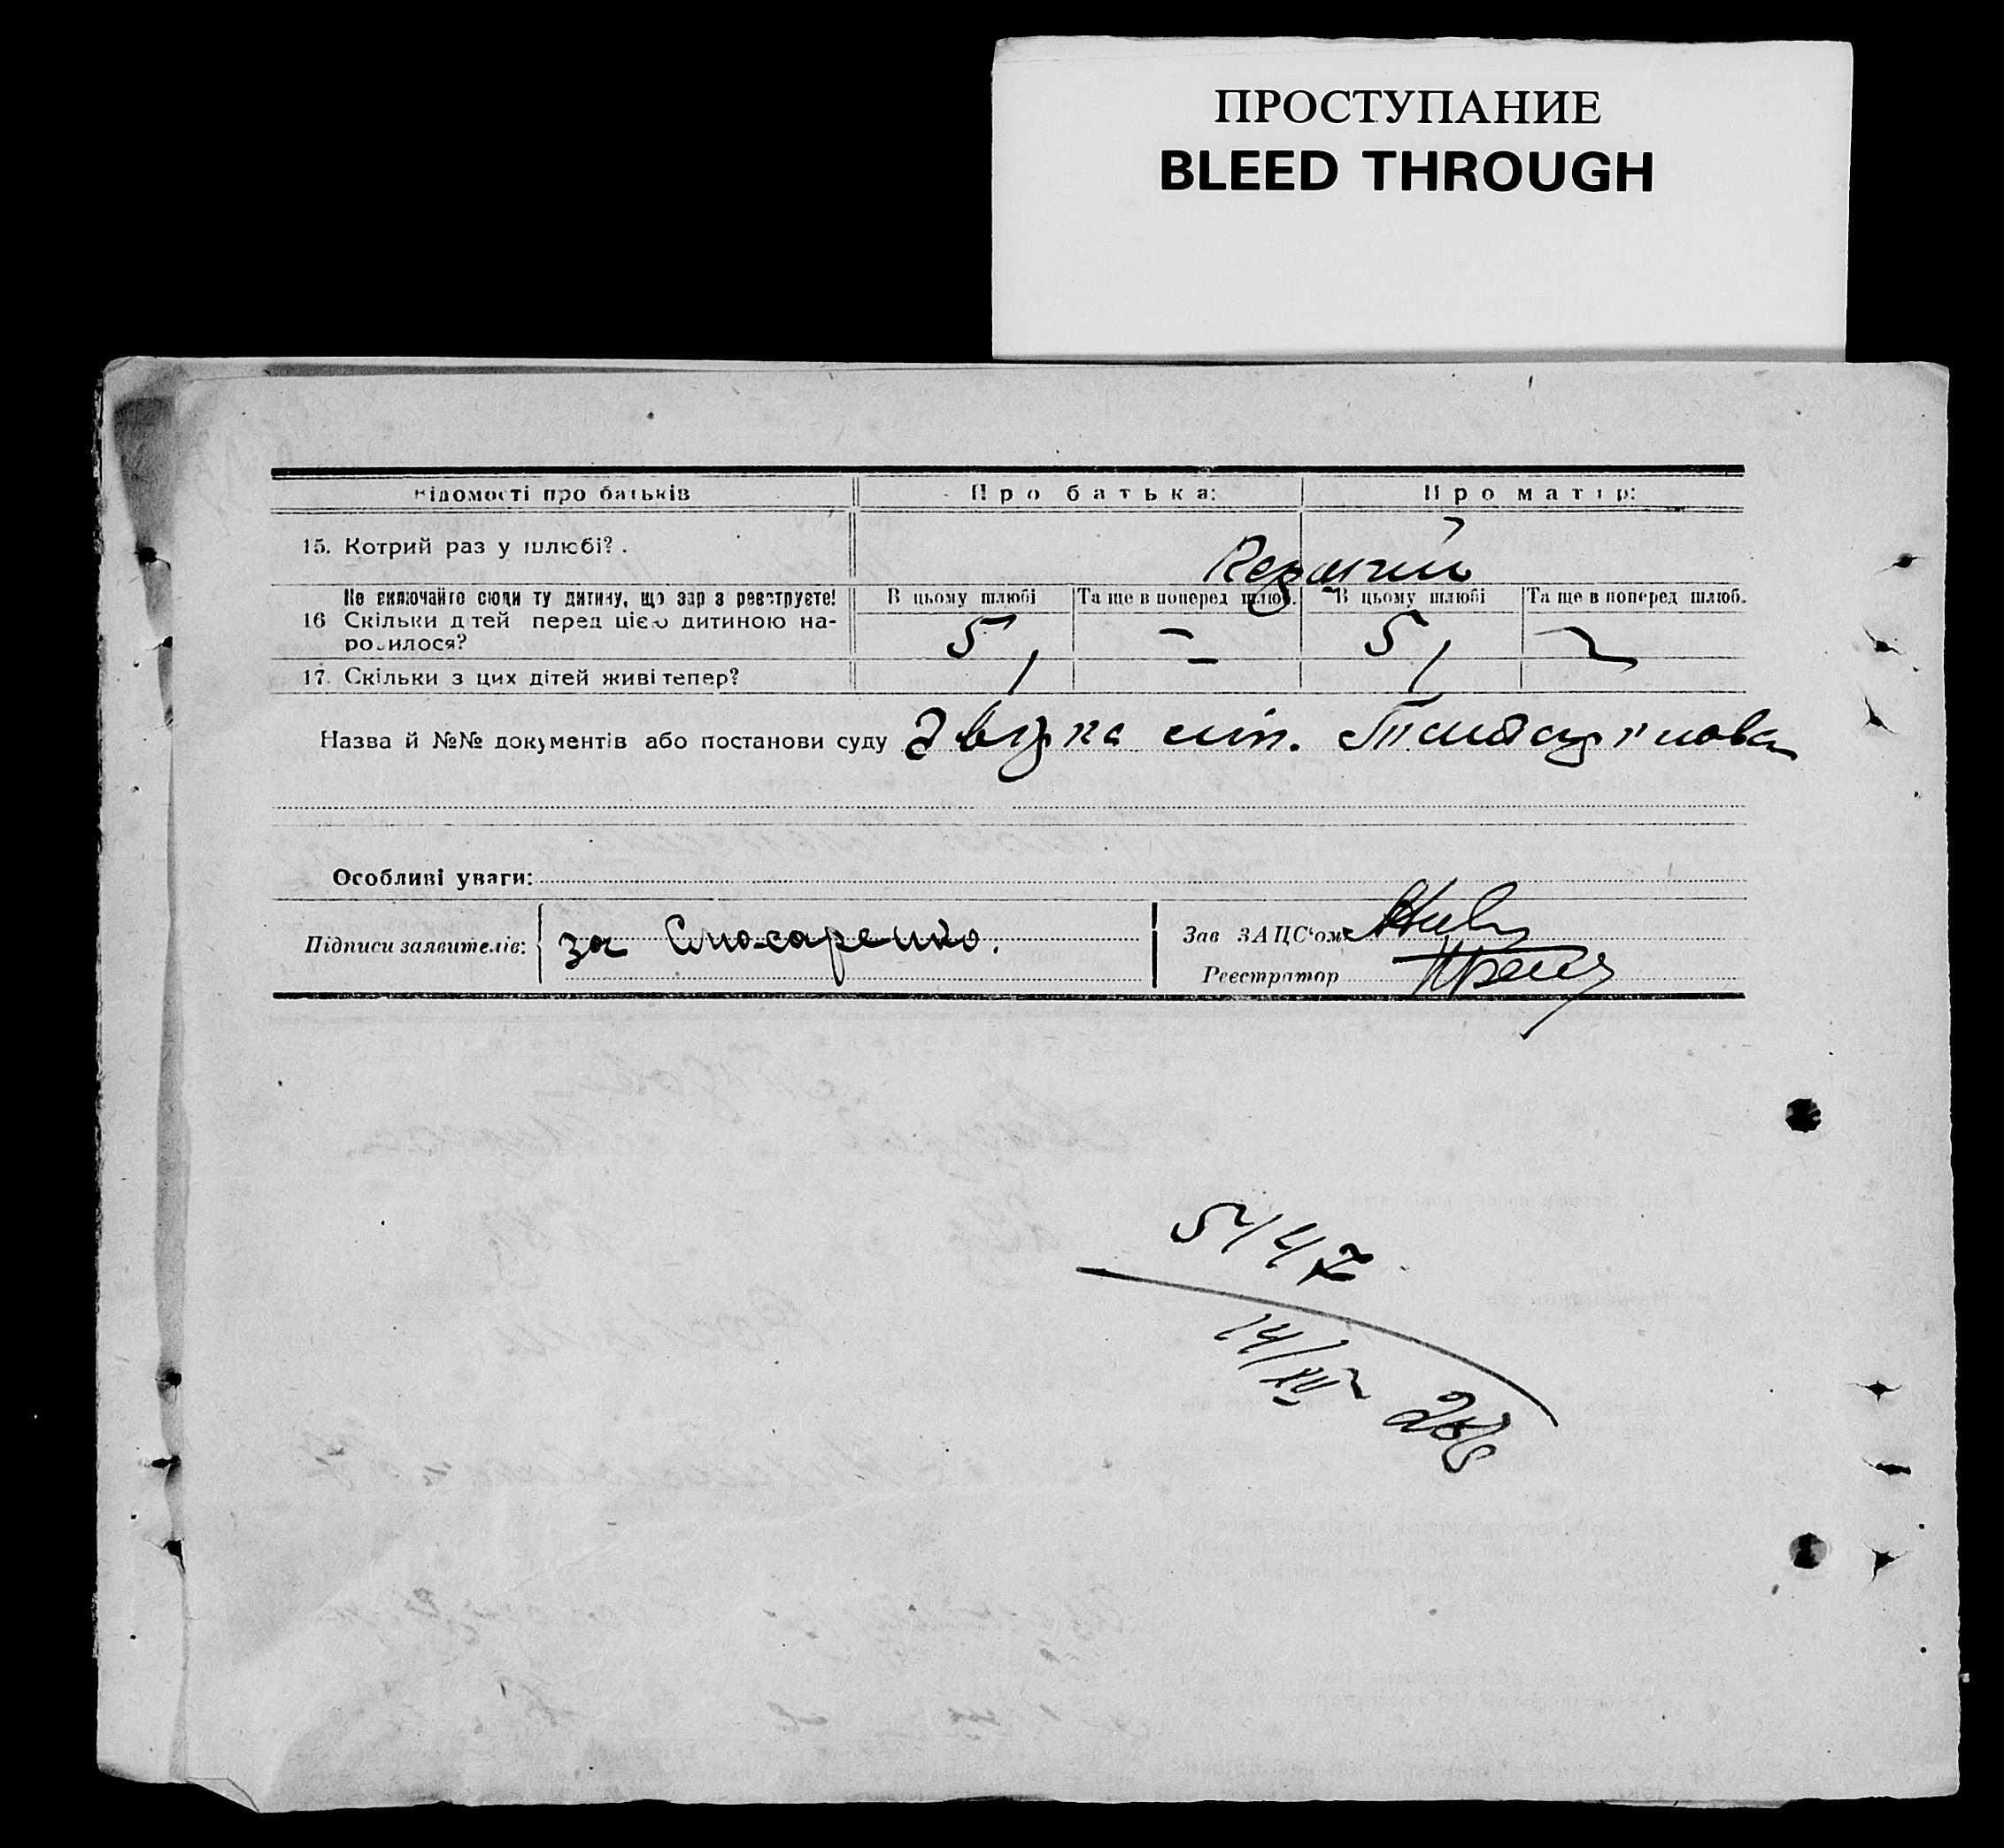 ПРОСТУПАНИЕ
BLEED THROUGH
Відомості про батьків
Про батька:
Про матір:
15. Котрий раз у шлюбі?
Не включайте сюди ту дитину, що зараз реєструєте!
16 Скільки дітей перед цією дитиною на-
родилося?
В цьому шлюбі
Та ще в поперед шлюб.
В цьому шлюбі
Та ще в поперед шлюб.
5
5
17. Скільки з цих дітей живі тепер?
Назва й №№ документів або постанови суду
Особливі уваги:
Підписи заявителів: за Слюсаренко.
Зав ЗАЦС'ом
Реєстратор
5147
14/XII